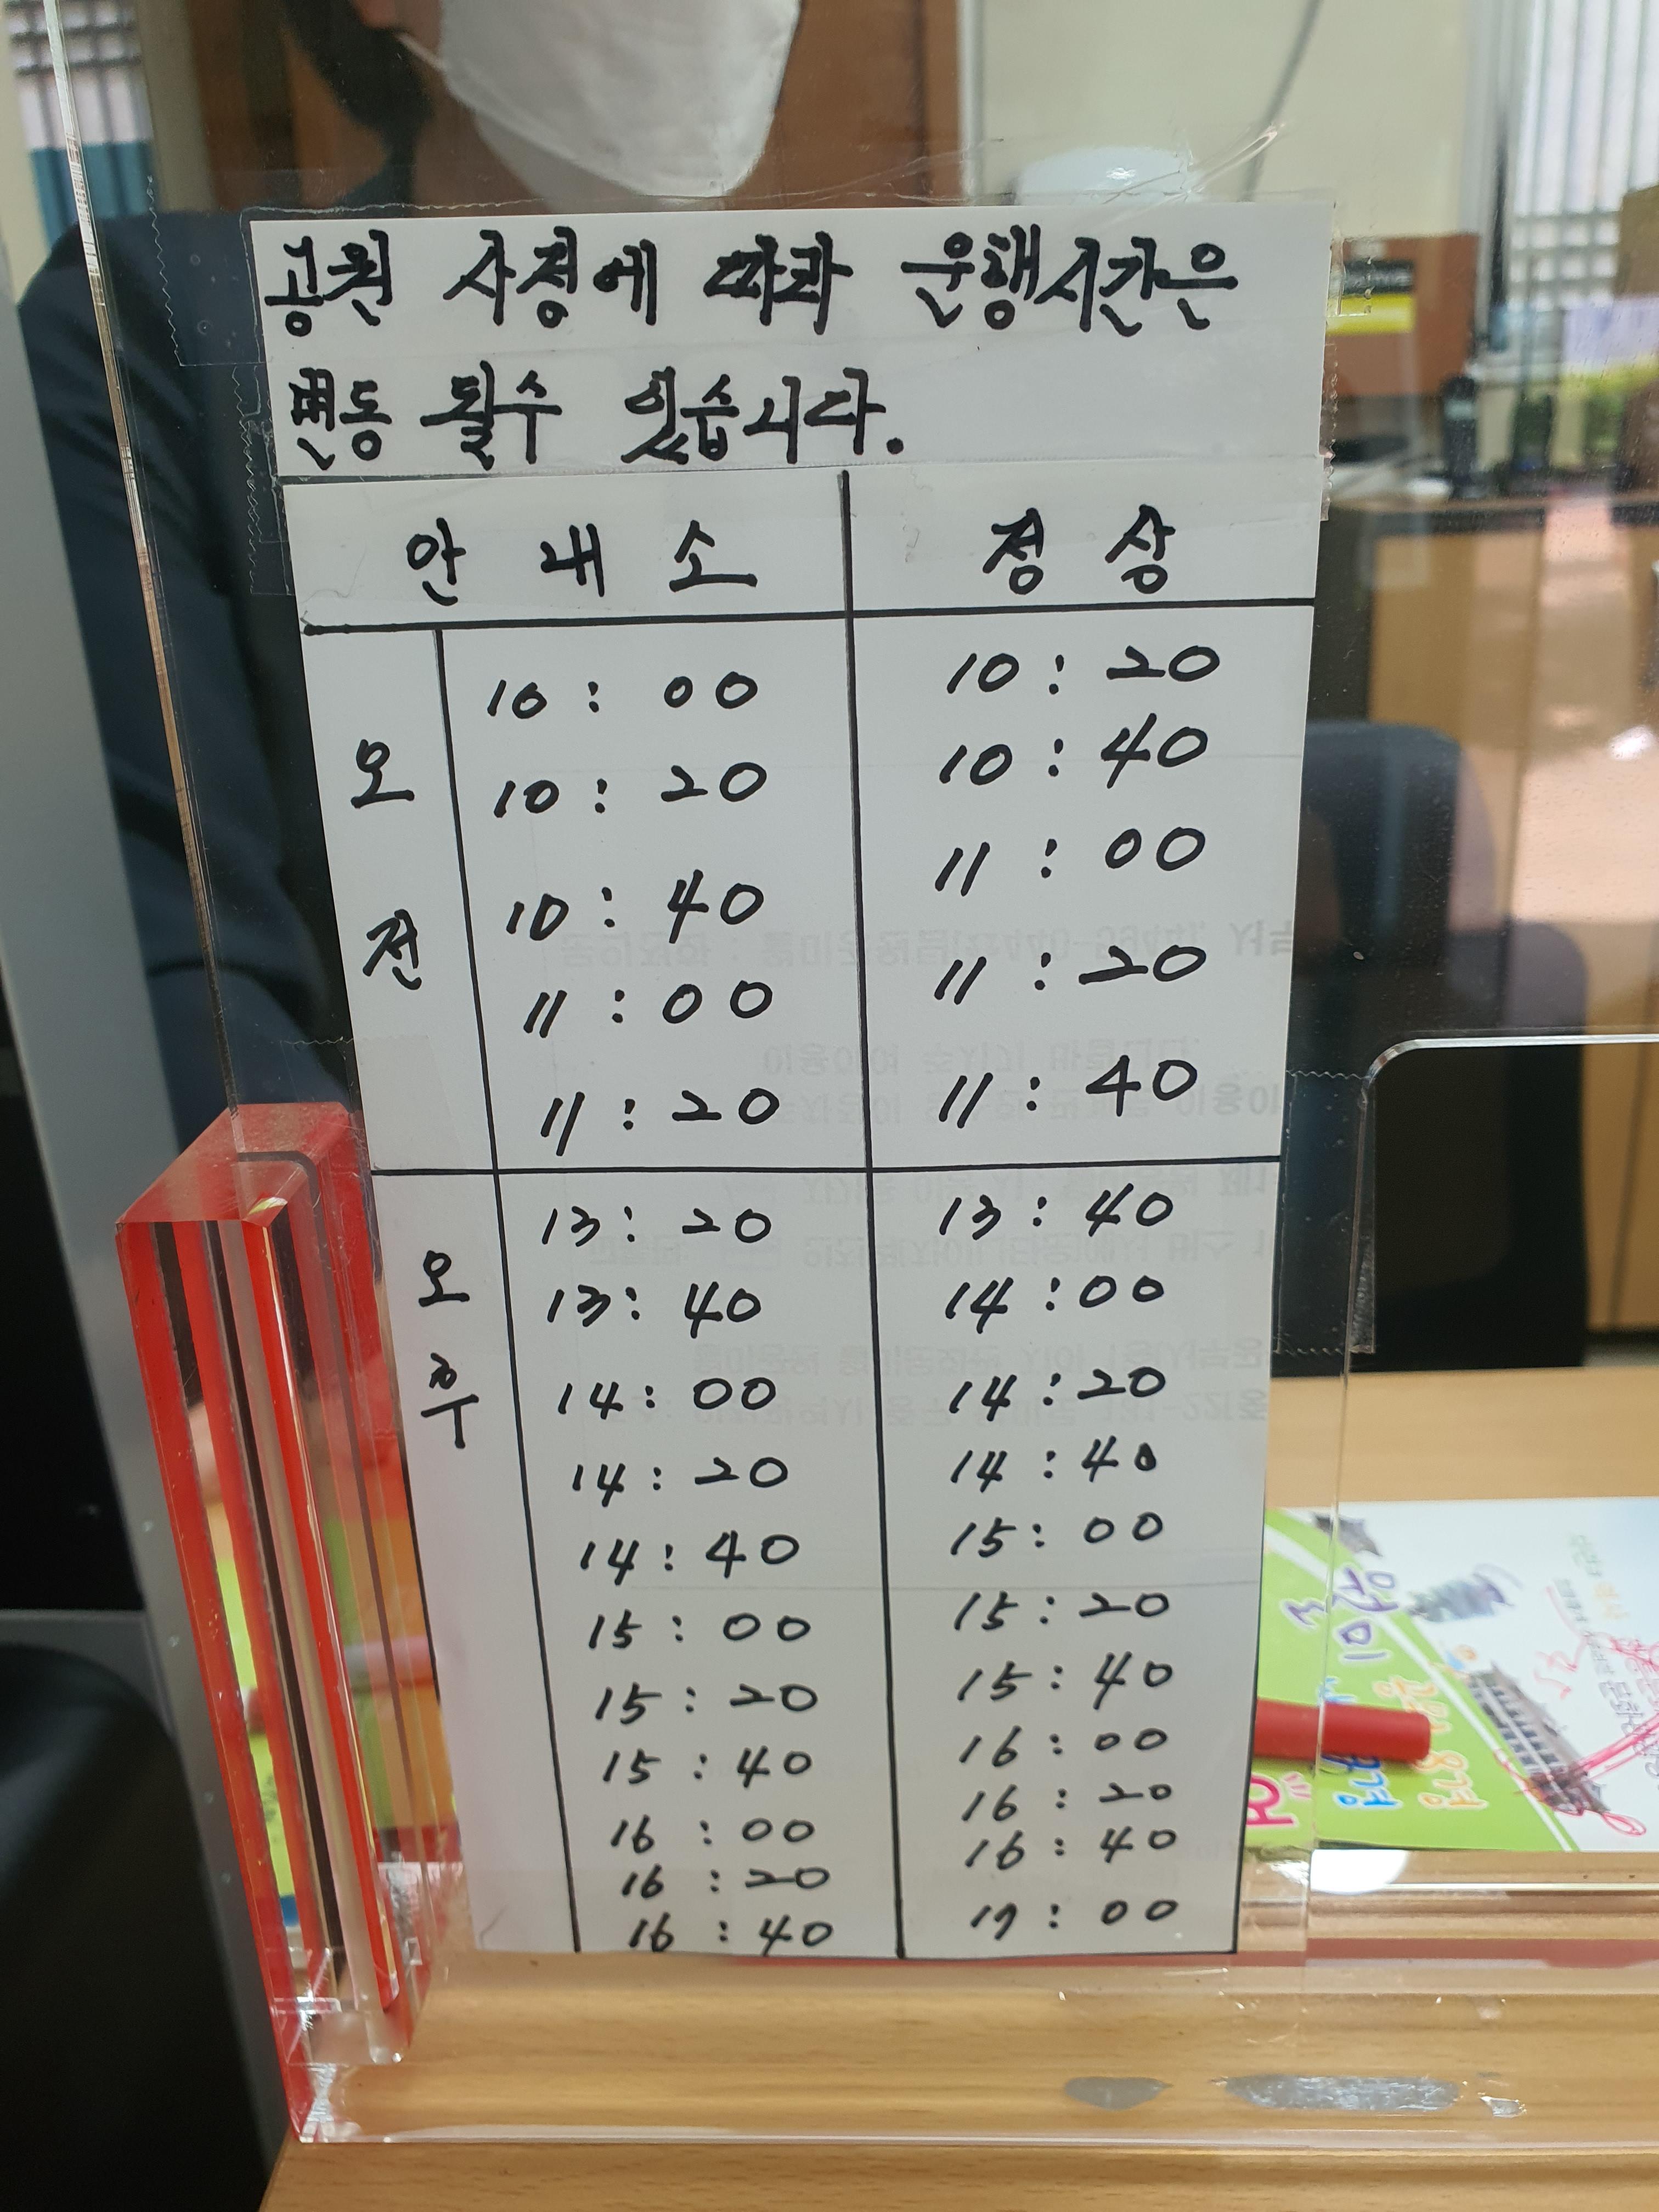 공원 사정에 따라 운행시간은
변동 될수 있습니다.
안내소 정상
오전
10:00 10:20
10:20 10:40
10:40 11:00
11:00 11:20
11:20 11:40
오후
13:20 13:40
13:40 14:00
14:00 14:20
14:20 14:40
14:40 15:00
15:00 15:20
15:20 15:40
15:40 16:00
16:00 16:20
16:20 16:40
16:40 17:00